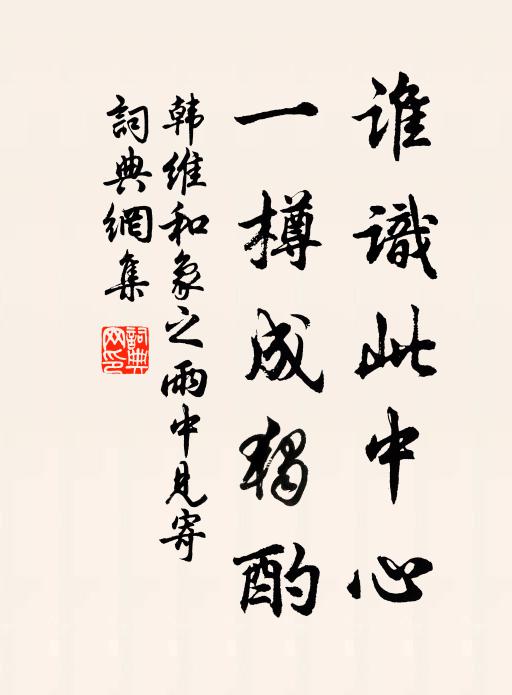 谁識此中心
一樽成獨酌
韩维和象之雨中見寄
詞典網集
詞典网印